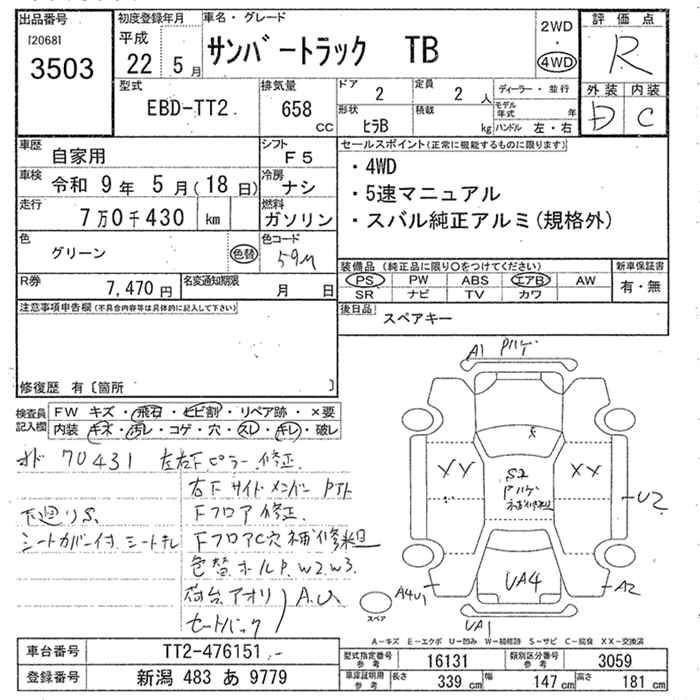 出品番号
[2068]
3503
初度登録年月
平成
22 5 月
車名・グレード
サンバートラック TB
2WD
4WD
評価点
R
型式
EBD-TT2
排気量
658 CC
ドア
2
定員
2 人
形状
ヒラB
積載
kg
ディーラー・並行
モデル年式 年
ハンドル 左・右
外装 内装
D C
車歴
自家用
シフト
F5
車検
令和 9 年 5 月(18 日)
冷房
ナシ
走行
7万0千430 km
燃料
ガソリン
色
グリーン
色替
色コード
59M
R券
7,470 円
名変通知期限
月 日
セールスポイント(正常に機能するものに限ります)
・4WD
・5速マニュアル
・スバル純正アルミ(規格外)
装備品(純正品に限り○をつけてください)
PS PW ABS エアB AW
SR ナビ TV カワ
新車保証書
有・無
後日品
スペアキー
注意事項申告欄(不具合内容等は具体的に記入して下さい)
修復歴 有〔箇所 〕
検査員記入欄
FW キズ・飛石・ヒビ割・リペア跡・×要
内装 キズ・汚レ・コゲ・穴・スレ・キレ・破レ
メド 70431
左右下ピラー修正
右下サイドメンバー
下廻りS
Fフロア修正
シートカバー付 シートキレ
FフロアC穴補修椢
色替 ホールP. W2. W3.
荷台アオリ A.U
セートバック
A1
XX
XX
S2
補修
U2
UA4
A4U1
A2
UA1
スペア
A-キズ E-エクボ U-凹み W-補修跡 S-サビ C-腐食 XX-交換済
車台番号
TT2-476151
登録番号
新潟 483 あ 9779
型式指定番号 参考
16131
類別区分番号 参考
3059
車庫証明用 参考
長さ 339 cm
幅 147 cm
高さ 181 cm